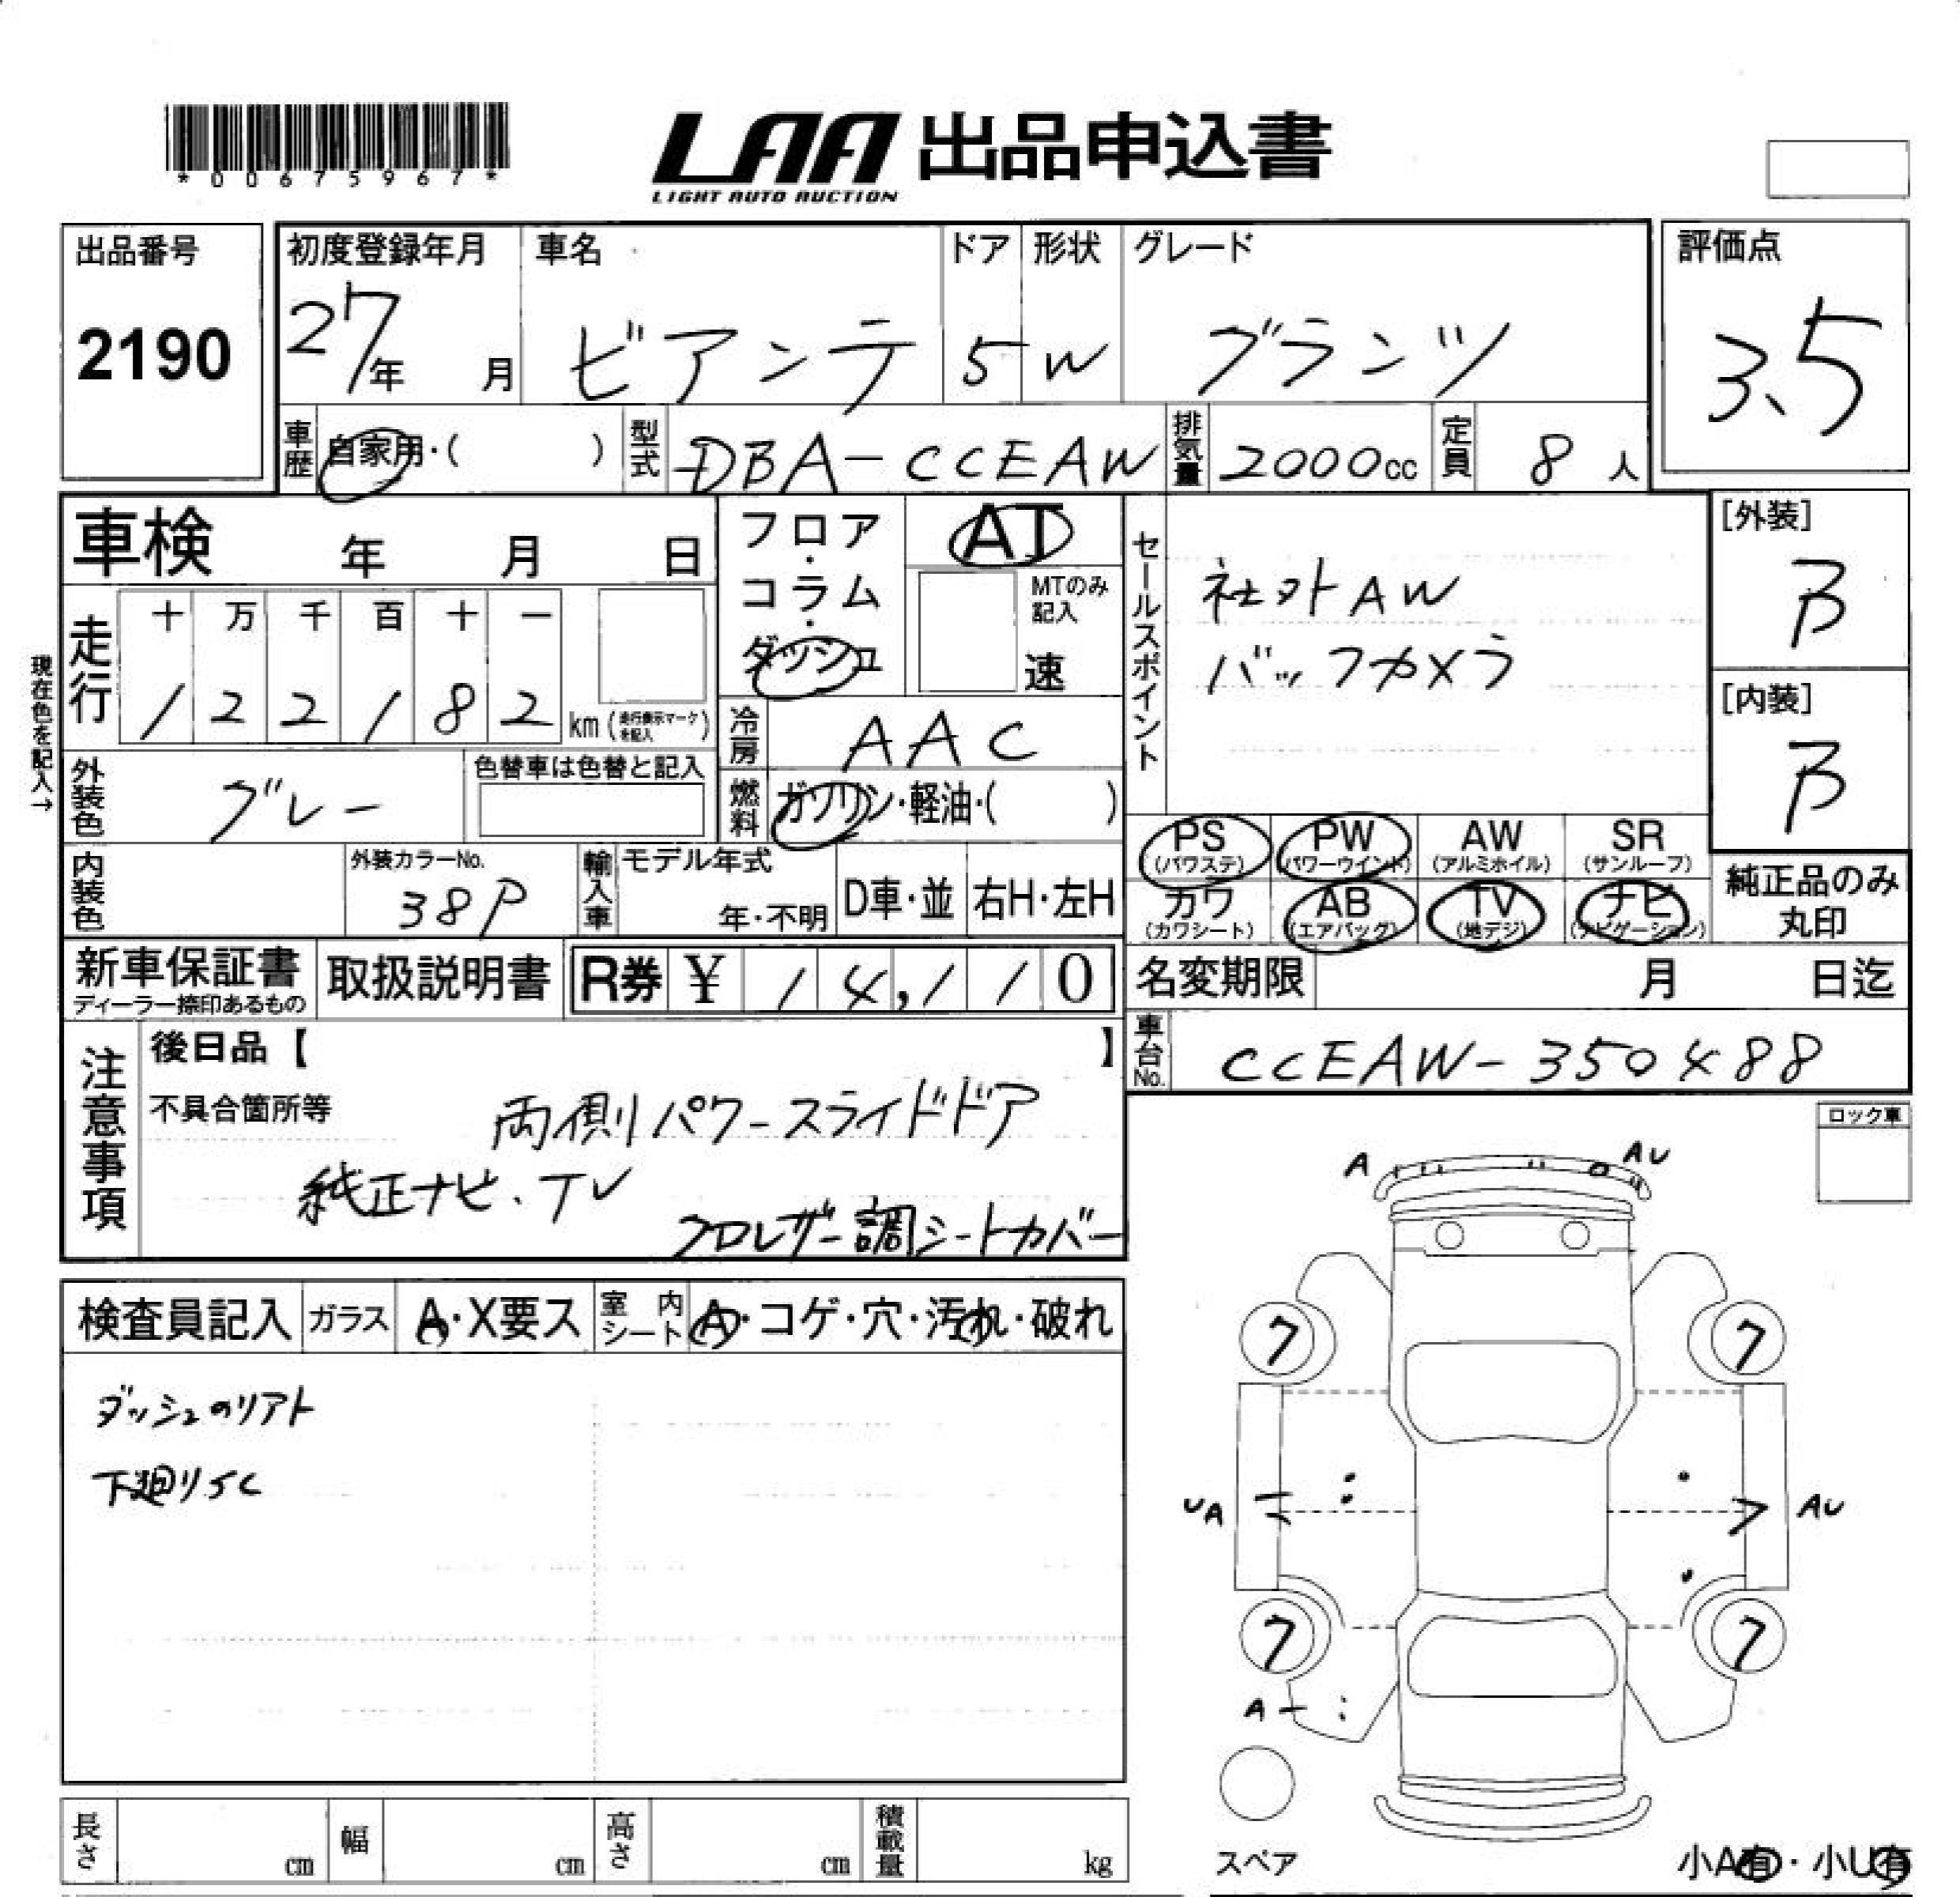 *00675967*
LAA 出品申込書
LIGHT AUTO AUCTION
出品番号
2190
初度登録年月
27年 月
車名
ビアンテ
ドア
5
形状
W
グレード
グランツ
評価点
3.5
車歴 自家用・( )
型式 DBA-CCEAW
排気量 2000cc
定員 8人
車検 年 月 日
フロア・コラム・ダッシュ
AT
MTのみ記入
速
セールスポイント
社外AW
バックカメラ
[外装]
B
[内装]
B
現在色を記入→
走行
十 万 千 百 十 一
1 2 2 1 8 2 km (走行表示マークを記入)
冷房 AAC
外装色 グレー
色替車は色替と記入
燃料 ガソリン・軽油・( )
PS (パワステ)
PW (パワーウインド)
AW (アルミホイル)
SR (サンルーフ)
カワ (カワシート)
AB (エアバッグ)
TV (地デジ)
ナビ (ナビゲーション)
純正品のみ丸印
内装色
外装カラーNo.
38P
輸入車
モデル年式
年・不明
D車・並
右H・左H
新車保証書
ディーラー捺印あるもの
取扱説明書
R券 ¥ 14,110
名変期限 月 日迄
車台No. CCEAW-350488
注意事項
後日品【 】
不具合箇所等
両側パワースライドドア
純正ナビ.TV
クロレザー調シートカバー
ロック車
検査員記入
ガラス A・X要ス
室内シート A・コゲ・穴・汚れ・破れ
ダッシュのリアト
下廻りSC
A
AU
7
7
UA
AU
7
7
A
スペア
小A有・小U有
長さ cm
幅 cm
高さ cm
積載量 kg